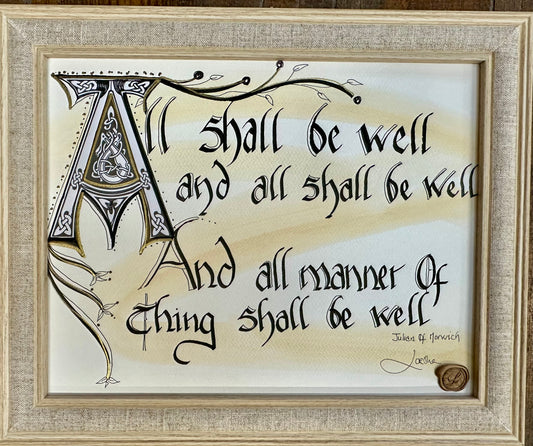 All shall be well
and all shall be well
And all manner Of
Thing shall be well
Julian Of Norwich